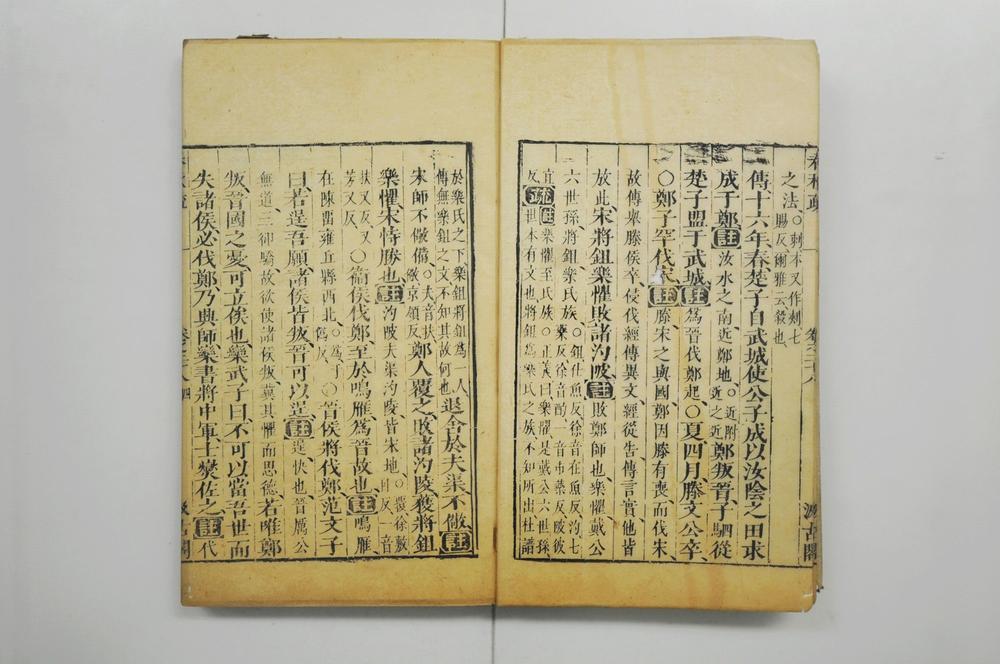 春秋疏 卷二十八 汲古閣
之法。○刺本又作刺七賜反爾雅云殺也
傳十六年春楚子自武城使公子成以汝陰之田求
成于鄭註汝水之南近鄭地。○近附近之近鄭叛晉子駟從
楚子盟于武城註爲晉伐鄭起○夏四月滕文公卒
○鄭子罕伐宋註滕宋之與國鄭因滕有喪而伐宋
故傳舉滕侯卒侵伐經傳異文經從告傳言實他皆
放此宋將鉏樂懼敗諸汋陂註敗鄭師也樂懼戴公
六世孫將鉏樂氏族。○鉏仕魚反徐音在魚反汋七藥反徐音酌一音市藥反陂彼
反疏註樂懼至氏族。○正義曰樂懼是戴公六世孫世本有文也將鉏爲樂氏之族不知所出杜譜
於樂氏之下樂鉏將鉏爲一人傳無樂鉏之文不知其故何也退舍於夫渠不儆註
宋師不儆備。○夫音扶儆京領反鄭人覆之敗諸汋陵獲將鉏
樂懼宋恃勝也註汋陂夫渠汋陵皆宋地。○覆徐敷目反一音
扶又反又芳又反○衞侯伐鄭至於鳴雁爲晉故也註鳴雁
在陳留雍丘縣西北。○爲于僞反○晉侯將伐鄭范文子
曰若逞吾願諸侯皆叛晉可以逞註逞快也晉厲公
無道三郤驕故欲使諸侯叛冀其懼而思德若唯鄭
叛晉國之憂可立俟也欒武子曰不可以當吾世而
失諸侯必伐鄭乃興師欒書將中軍士燮佐之註代
卷二十八 四 汲古閣